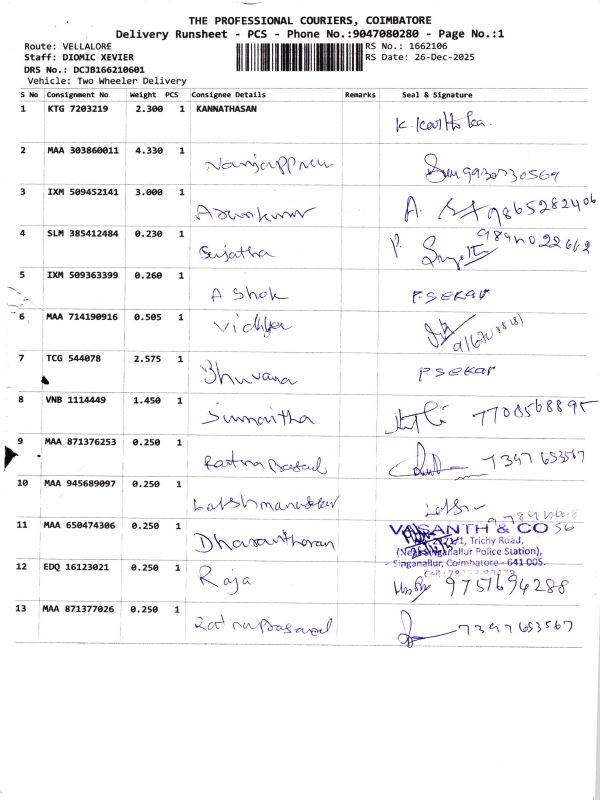 THE PROFESSIONAL COURIERS, COIMBATORE
Delivery Runsheet - PCS - Phone No.:9047080280 - Page No.:1
Route: VELLALORE RS No.: 1662106
Staff: DIOMIC XEVIER RS Date: 26-Dec-2025
DRS No.: DCJB166210601
Vehicle: Two Wheeler Delivery
S No Consignment No Weight PCS Consignee Details Remarks Seal & Signature
1 KTG 7203219 2.300 1 KANNATHASAN K.
2 MAA 303860011 4.330 1 9930730569
3 IXM 509452141 3.000 1 Arunkumar A. 9865282406
4 SLM 385412484 0.230 1 Sujatha P.
5 IXM 509363399 0.260 1 Ashok P SEKAR
6 MAA 714190916 0.505 1 Vidhya
7 TCG 544078 2.575 1 Bhuvana P SEKAR
8 VNB 1114449 1.450 1 7708568895
9 MAA 871376253 0.250 1 Ratna Prasad 7397653567
10 MAA 945689097 0.250 1
11 MAA 650474306 0.250 1 VASANTH & CO
Trichy Road,
(Near Singanallur Police Station),
Singanallur, Coimbatore - 641 005.
12 EDQ 16123021 0.250 1 Raja 9751694288
13 MAA 871377026 0.250 1 7397653567